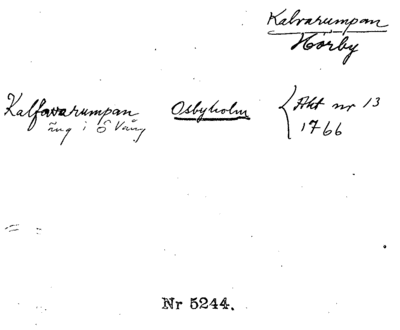 Kalvarumpan
Hörby
Kalfvarumpan Osbyholm { Akt nr 13
äng i Ö Vång 1766
Nr 5244.